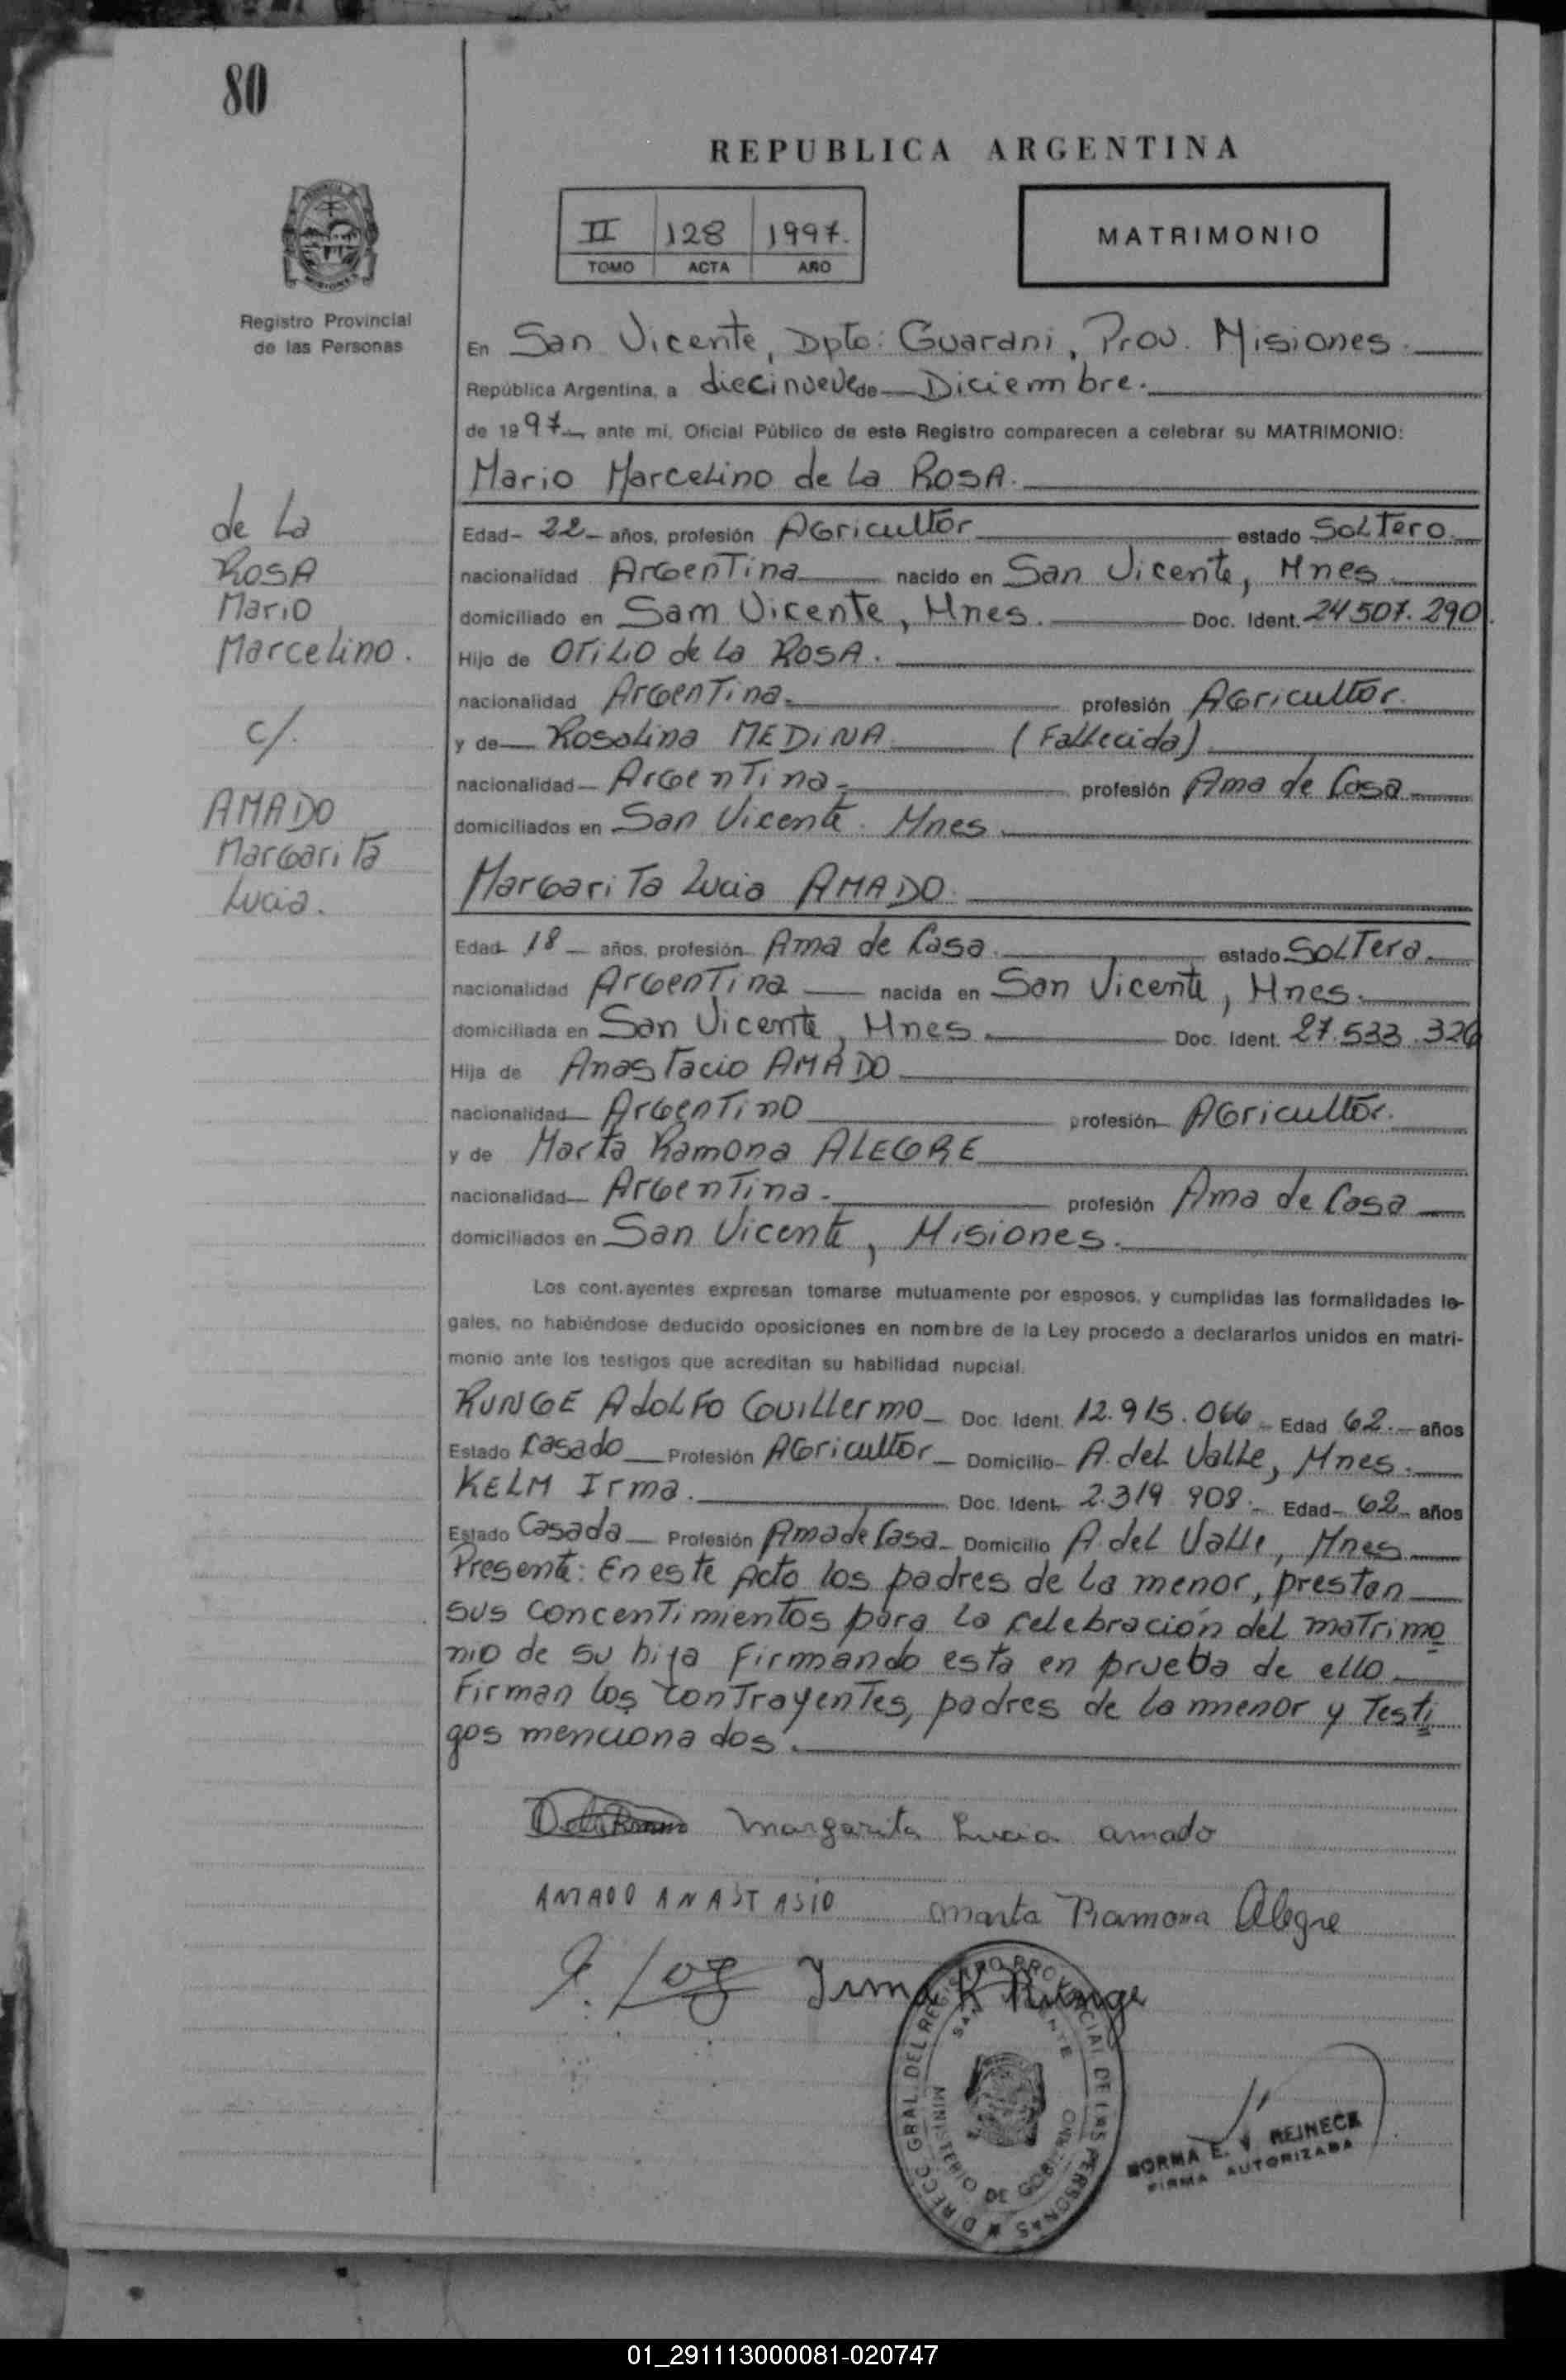 80
REPUBLICA ARGENTINA
II 128 1997.
TOMO ACTA AÑO
MATRIMONIO
Registro Provincial
de las Personas
En San Vicente, Dpto: Guarani, Prov. Misiones.
República Argentina, a diecinueve de Diciembre.
de 1997 ante mí, Oficial Público de este Registro comparecen a celebrar su MATRIMONIO:
Mario Marcelino de la ROSA.
de La
ROSA
Mario
Marcelino.
c/.
AMADO
Margarita
Lucia.
Edad 22 años, profesión Agricultor estado SOLTERO.
nacionalidad Argentina nacido en San Vicente, Mnes.
domiciliado en Sam Vicente, Mnes. Doc. Ident. 24.507.290.
Hijo de OTILIO de la ROSA.
nacionalidad Argentina. profesión Agricultor.
y de Rosalina MEDINA (Fallecida)
nacionalidad Argentina. profesión Ama de Casa
domiciliados en San Vicente. Mnes.
Margarita Lucia AMADO.
Edad 18 años, profesión Ama de Casa. estado SOLTERA.
nacionalidad Argentina nacida en San Vicente, Mnes.
domiciliada en San Vicente, Mnes. Doc. Ident. 27.533.326
Hija de Anastacio AMADO
nacionalidad Argentino profesión Agricultor.
y de Marta Ramona ALEGRE
nacionalidad Argentina. profesión Ama de Casa
domiciliados en San Vicente, Misiones.
Los cont.ayentes expresan tomarse mutuamente por esposos, y cumplidas las formalidades le-
gales, no habiéndose deducido oposiciones en nombre de la Ley procedo a declararlos unidos en matri-
monio ante los testigos que acreditan su habilidad nupcial.
RUNGE Adolfo Guillermo Doc. Ident. 12.915.066 Edad 62. años
Estado Casado Profesión Agricultor Domicilio A. del Valle, Mnes.
KELM Irma. Doc. Ident. 2.319.908. Edad 62 años
Estado Casada Profesión Ama de Casa. Domicilio A. del Valle, Mnes
Presente: En este Acto los padres de la menor, prestan
sus concentimientos para la celebración del matrimo
nio de su hija firmando esta en prueba de ello.
Firman los contrayentes, padres de la menor y Testi
gos mencionados.
Margarita Lucia amado
AMADO ANASTASIO Marta Ramona Alegre
Irma K Runge
DIRECC. GRAL. DEL REGISTRO PROVINCIAL DE LAS PERSONAS
SAN VICENTE
MINISTERIO DE GOBIERNO
NORMA E. V. REINECK
FIRMA AUTORIZADA
01_291113000081-020747